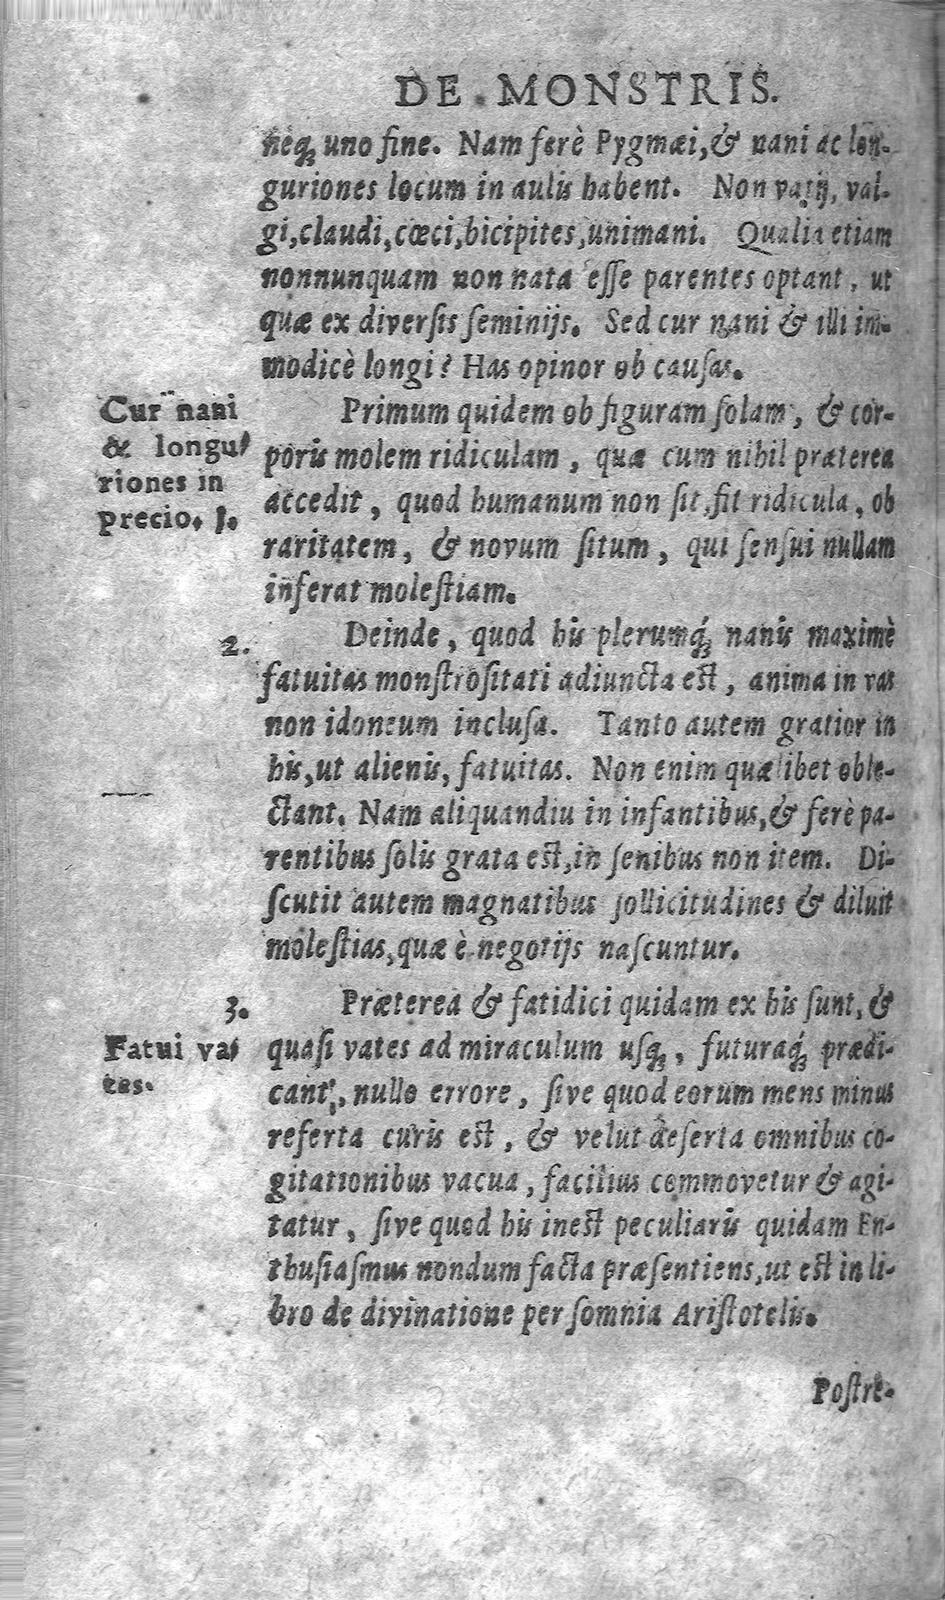 DE MONSTRIS.
neq́; uno fine. Nam ferè Pygmæi, & nani ac lon-
guriones locum in aulis habent. Non vatij, val-
gi, claudi, cœci, bicipites, unimani. Qualia etiam
nonnunquam non nata esse parentes optant, ut
quæ ex diversis seminijs. Sed cur nani & illi im-
modicè longi? Has opinor ob causas.
Cur nani
& longu-
riones in
precio. 1.
Primum quidem ob figuram solam, & cor-
poris molem ridiculam, quæ cum nihil præterea
accedit, quod humanum non sit, fit ridicula, ob
raritatem, & novum situm, qui sensui nullam
inferat molestiam.
2.
Deinde, quod his plerumq́; nanis maximè
fatuitas monstrositati adiuncta est, anima in vas
non idoneum inclusa. Tanto autem gratior in
his, ut alienis, fatuitas. Non enim quælibet oble-
ctant. Nam aliquandiu in infantibus, & ferè pa-
rentibus solis grata est, in senibus non item. Di-
scutit autem magnatibus sollicitudines & diluit
molestias, quæ è negotijs nascuntur.
3.
Fatui va-
tes.
Præterea & fatidici quidam ex his sunt, &
quasi vates ad miraculum usq;, futuraq́; prædi-
cant, nullo errore, sive quod eorum mens minus
referta curis est, & velut deserta omnibus co-
gitationibus vacua, facilius commovetur & agi-
tatur, sive quod his inest peculiaris quidam En-
thusiasmus nondum facta præsentiens, ut est in li-
bro de divinatione per somnia Aristotelis.
Postre-